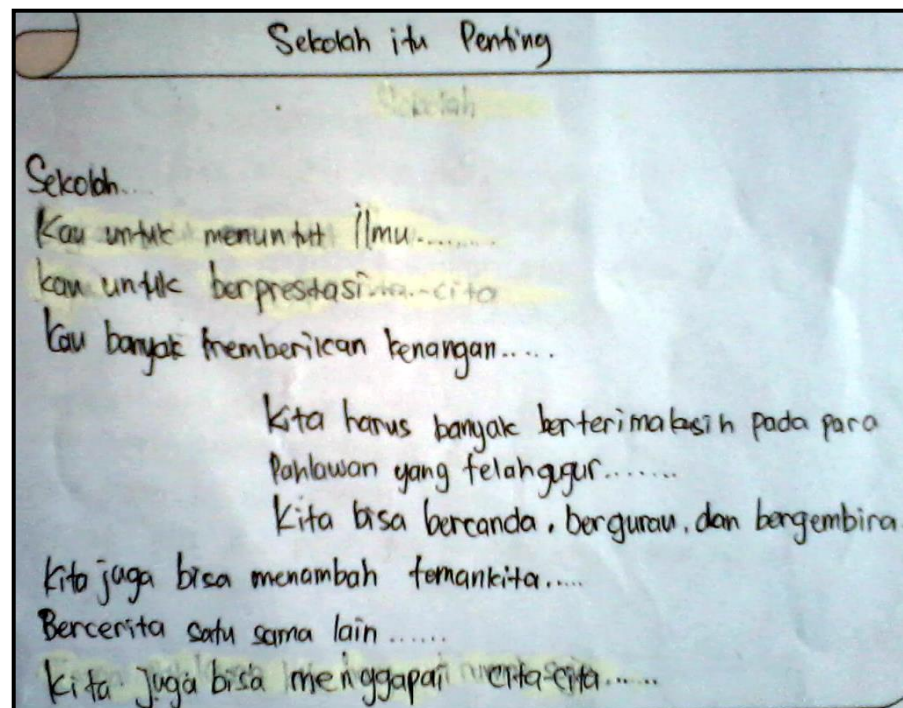 Sekolah itu Penting
Sekolah
Sekolah....
Kau untuk menuntut ilmu........
kau untuk berprestasi....-cita
kau banyak memberikan kenangan.....
Kita harus banyak berterimakasih pada para
Pahlawan yang telah gugur.......
Kita bisa bercanda, bergurau, dan bergembira
Kita juga bisa menambah teman kita.....
Bercerita satu sama lain ......
Kita juga bisa menggapai cita-cita......